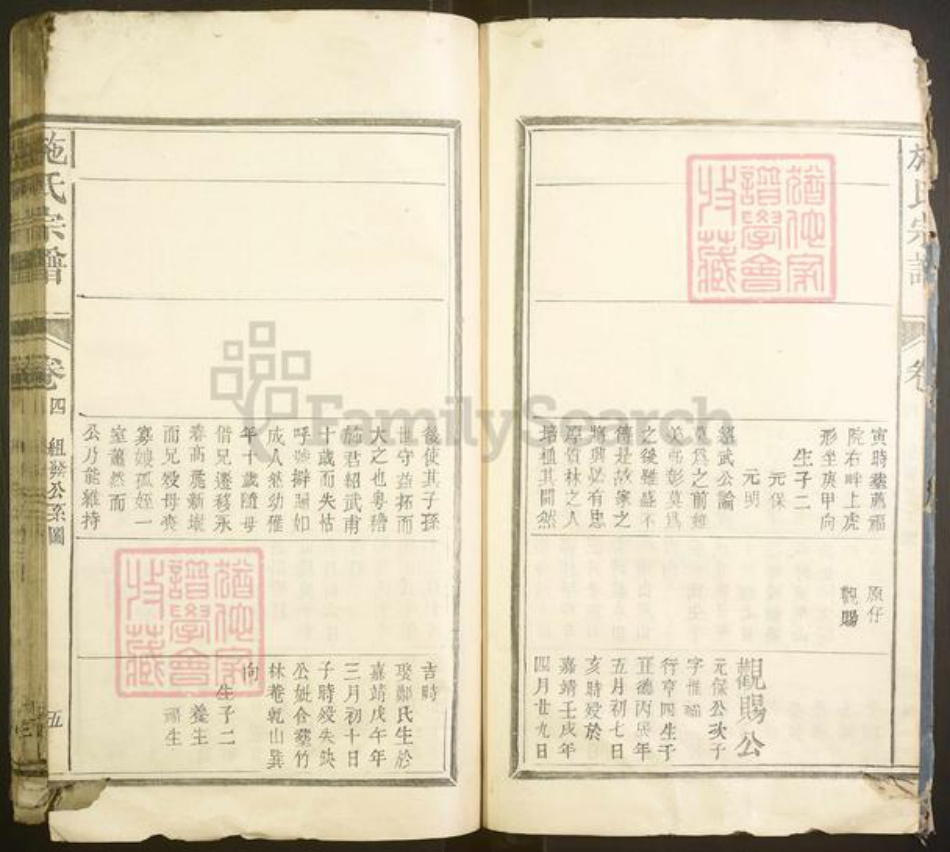 施氏宗譜
卷
寅時葬薦福
院右畔上虎
形坐庚甲向
生子二
元保
元明
紹武公論
莫為之前雖
美弗彰莫為
之後雖盛不
傳是故家之
將興必有忠
厚質林之人
培植其開然
原仔
觀賜
觀賜公
元保公次子
字惟
行亨四生于
正德丙辰年
五月初七日
亥時歿於
嘉靖壬戌年
四月廿九日
後使其子孫
世守益拓而
大之也粵稽
施君紹武甫
十歲而失怙
呼號擗踊如
成人然幼
年十歲隨母
偕兄遷移永
春高
而兄歿母喪
寡嫂孤姪一
室蕭然而
公乃能維持
吉時
娶鄭氏生於
嘉靖戊午年
三月初十日
子時歿失缺
公妣合葬竹
林巷乾山巽
向
生子二
養生
福生
施氏宗譜
卷四
組發公系圖
五
FamilySearch
猶他家
譜學會
收藏
猶他家
譜學會
收藏